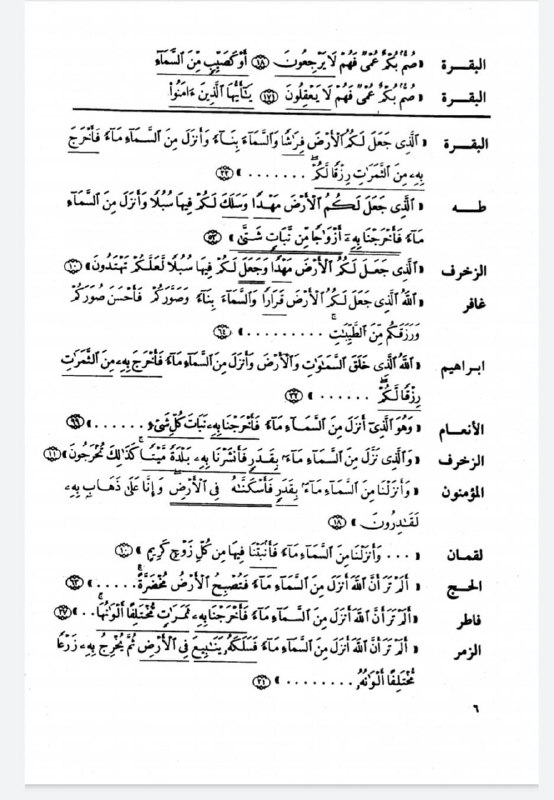 البقرة « صُمٌّ بُكْمٌ عُمْىٌ فَهُمْ لَا يَرْجِعُونَ ﴿١٨﴾ أَوْ كَصَيِّبٍ مِّنَ السَّمَآءِ
البقرة « صُمٌّ بُكْمٌ عُمْىٌ فَهُمْ لَا يَعْقِلُونَ ﴿١٧١﴾ يَٰٓأَيُّهَا الَّذِينَ ءَامَنُواْ
البقرة « الَّذِى جَعَلَ لَكُمُ الْأَرْضَ فِرَٰشًا وَالسَّمَآءَ بِنَآءً وَأَنزَلَ مِنَ السَّمَآءِ مَآءً فَأَخْرَجَ
بِهِۦ مِنَ الثَّمَرَٰتِ رِزْقًا لَّكُمْ ........ » ﴿٢٢﴾
طـه « الَّذِى جَعَلَ لَكُمُ الْأَرْضَ مَهْدًا وَسَلَكَ لَكُمْ فِيهَا سُبُلًا وَأَنزَلَ مِنَ السَّمَآءِ
مَآءً فَأَخْرَجْنَا بِهِۦٓ أَزْوَٰجًا مِّن نَّبَاتٍ شَتَّىٰ » ﴿٥٣﴾
الزخرف « الَّذِى جَعَلَ لَكُمُ الْأَرْضَ مَهْدًا وَجَعَلَ لَكُمْ فِيهَا سُبُلًا لَّعَلَّكُمْ تَهْتَدُونَ » ﴿١٠﴾
غافر « اللَّهُ الَّذِى جَعَلَ لَكُمُ الْأَرْضَ قَرَارًا وَالسَّمَآءَ بِنَآءً وَصَوَّرَكُمْ فَأَحْسَنَ صُوَرَكُمْ
وَرَزَقَكُم مِّنَ الطَّيِّبَٰتِ ......... » ﴿٦٤﴾
ابراهيم « اللَّهُ الَّذِى خَلَقَ السَّمَٰوَٰتِ وَالْأَرْضَ وَأَنزَلَ مِنَ السَّمَآءِ مَآءً فَأَخْرَجَ بِهِۦ مِنَ الثَّمَرَٰتِ
رِزْقًا لَّكُمْ ...... » ﴿٣٢﴾
الأنعام « وَهُوَ الَّذِىٓ أَنزَلَ مِنَ السَّمَآءِ مَآءً فَأَخْرَجْنَا بِهِۦ نَبَاتَ كُلِّ شَىْءٍ ...... » ﴿٩٩﴾
الزخرف « وَالَّذِى نَزَّلَ مِنَ السَّمَآءِ مَآءًۢ بِقَدَرٍ فَأَنشَرْنَا بِهِۦ بَلْدَةً مَّيْتًا كَذَٰلِكَ تُخْرَجُونَ » ﴿١١﴾
المؤمنون « وَأَنزَلْنَا مِنَ السَّمَآءِ مَآءًۢ بِقَدَرٍ فَأَسْكَنَّٰهُ فِى الْأَرْضِ وَإِنَّا عَلَىٰ ذَهَابٍۭ بِهِۦ
لَقَٰدِرُونَ » ﴿١٨﴾
لقمان « ... وَأَنزَلْنَا مِنَ السَّمَآءِ مَآءً فَأَنۢبَتْنَا فِيهَا مِن كُلِّ زَوْجٍ كَرِيمٍ » ﴿١٠﴾
الحج « أَلَمْ تَرَ أَنَّ اللَّهَ أَنزَلَ مِنَ السَّمَآءِ مَآءً فَتُصْبِحُ الْأَرْضُ مُخْضَرَّةً ..... » ﴿٦٣﴾
فاطر « أَلَمْ تَرَ أَنَّ اللَّهَ أَنزَلَ مِنَ السَّمَآءِ مَآءً فَأَخْرَجْنَا بِهِۦ ثَمَرَٰتٍ مُّخْتَلِفًا أَلْوَٰنُهَا .. » ﴿٢٧﴾
الزمر « أَلَمْ تَرَ أَنَّ اللَّهَ أَنزَلَ مِنَ السَّمَآءِ مَآءً فَسَلَكَهُۥ يَنَٰبِيعَ فِى الْأَرْضِ ثُمَّ يُخْرِجُ بِهِۦ زَرْعًا
مُّخْتَلِفًا أَلْوَٰنُهُۥ ........ » ﴿٢١﴾
٦